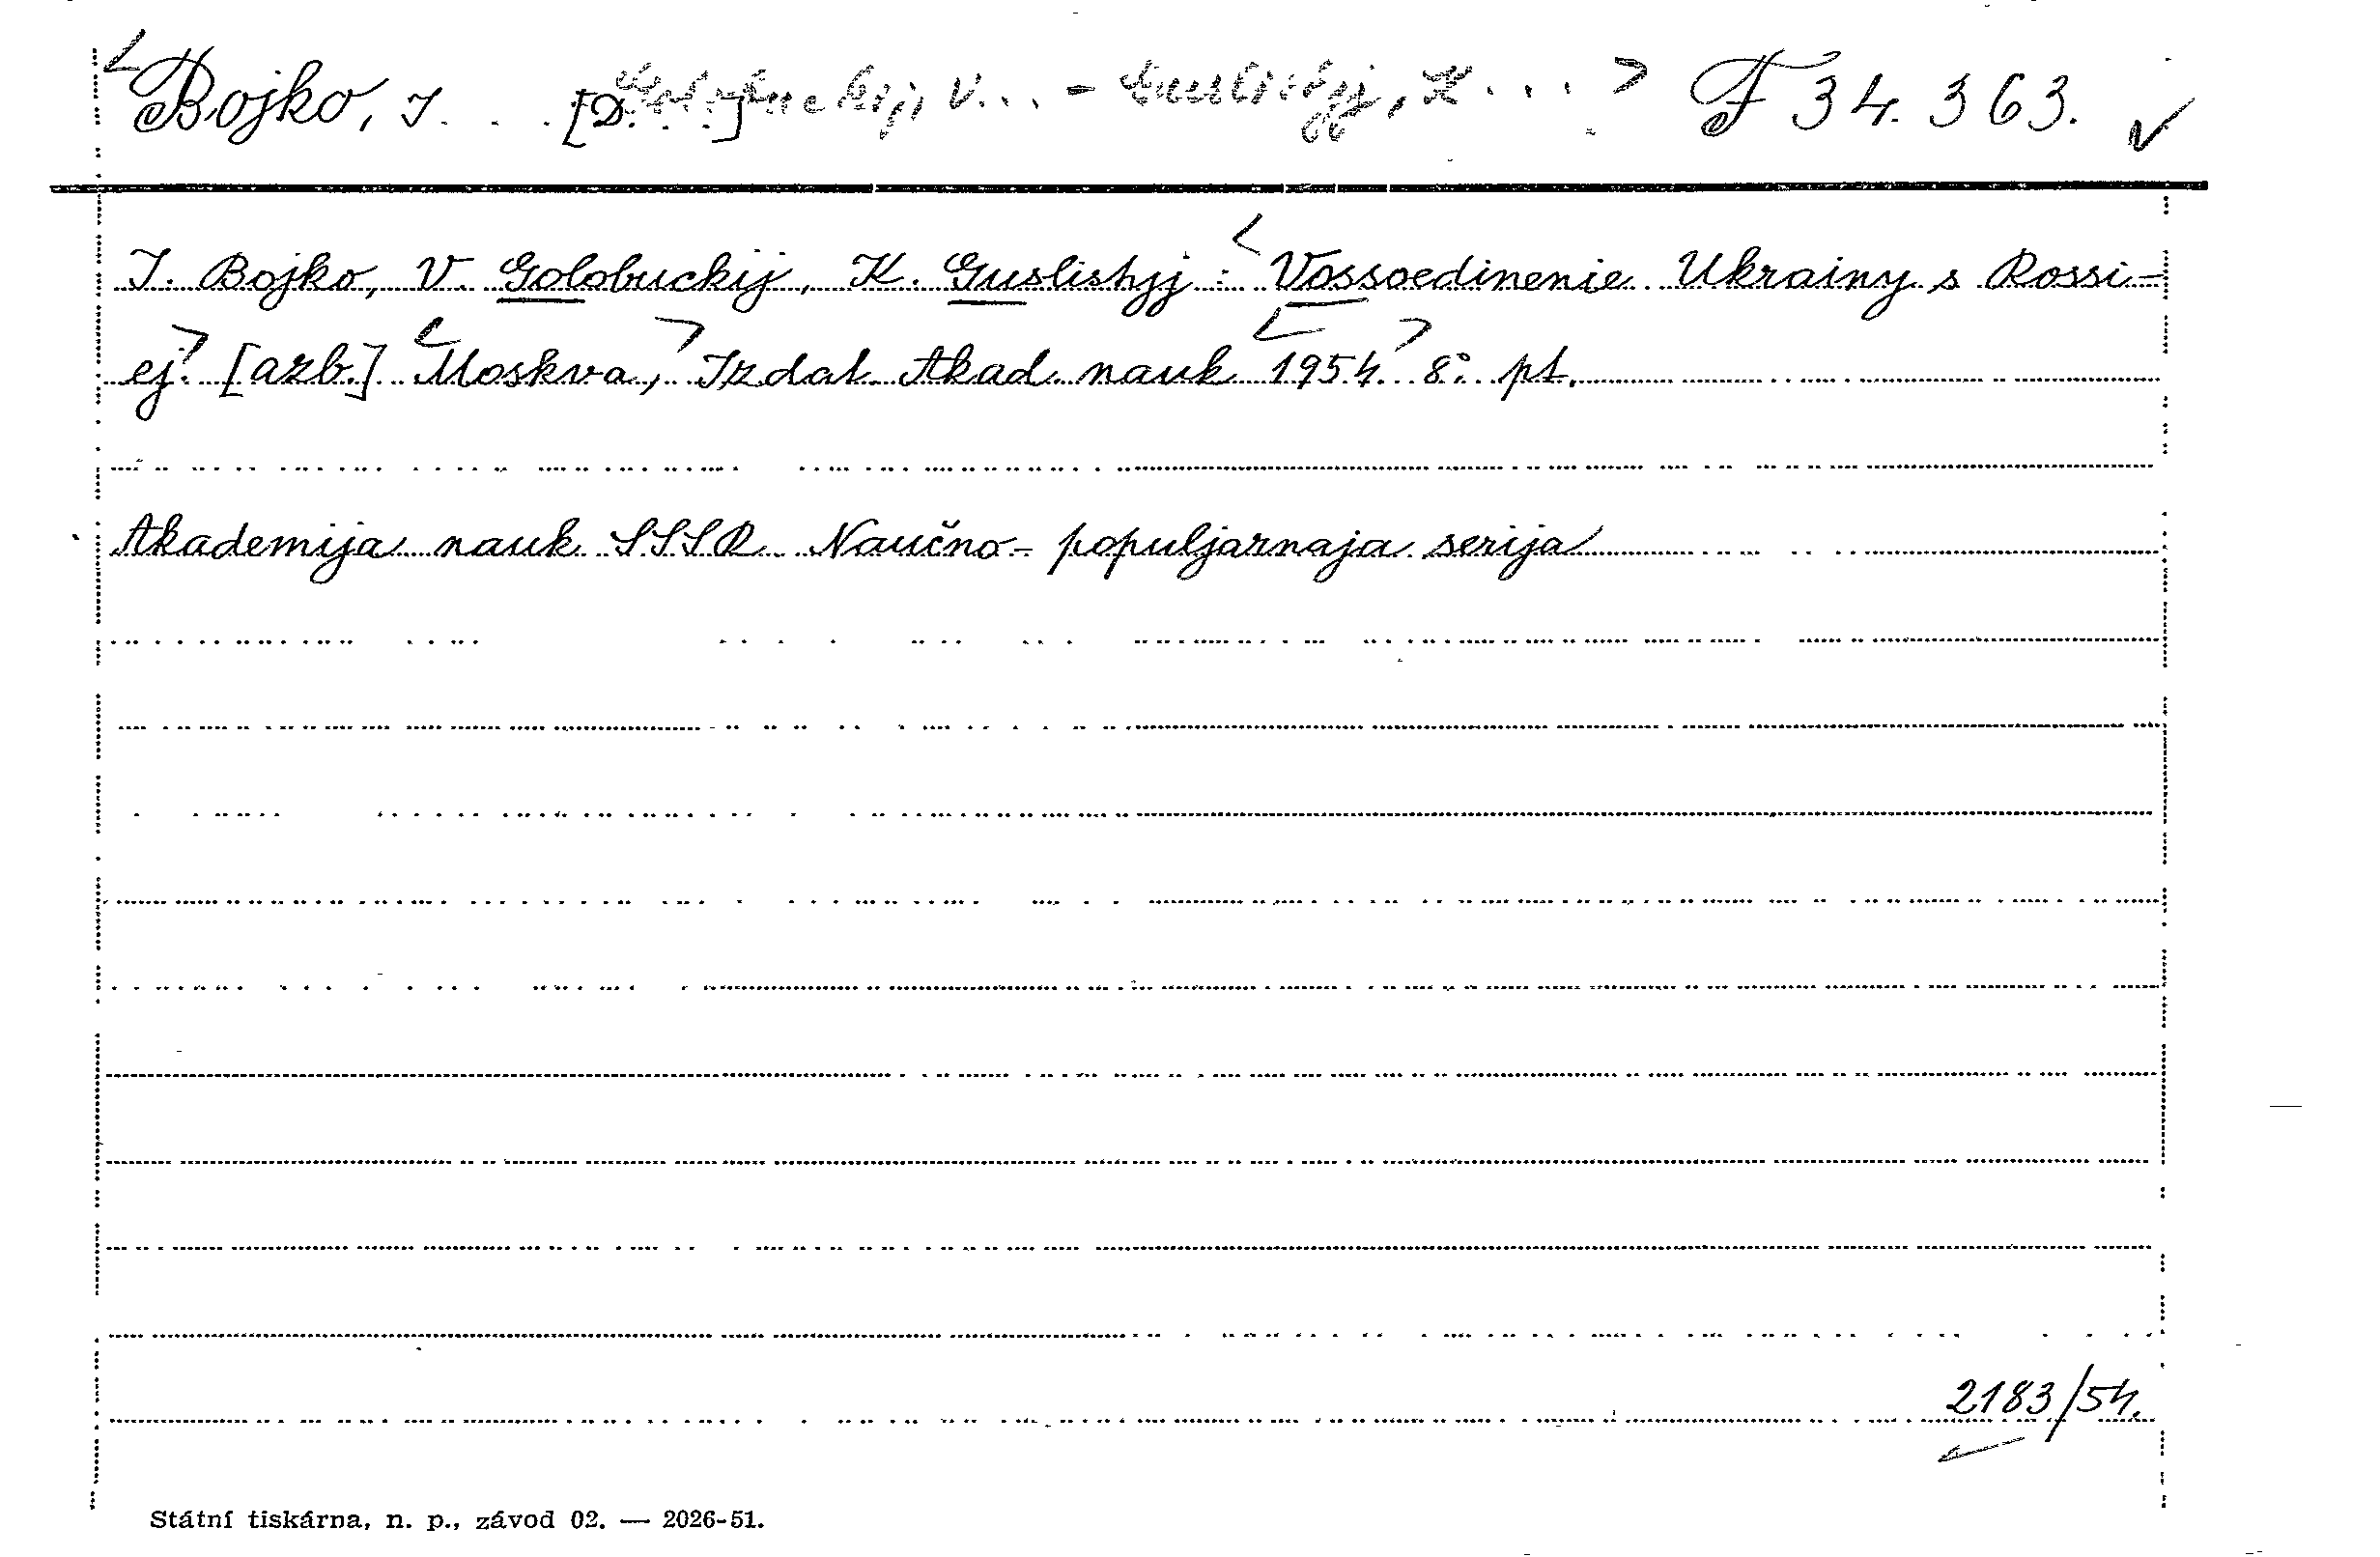 Bojko, I. . . [D. . .] Golobuckij, V... - Guslistyj, K... F 34.363.
I. Bojko, V. Golobuckij, K. Guslistyj : Vossoedinenie Ukrainy s Rossi-
ej. [azb.] Moskva, Izdat. Akad. nauk 1954. 8°. pt.
Akademija nauk SSSR. Naučno-populjarnaja serija
2183/54.
Státní tiskárna, n. p., závod 02. — 2026-51.